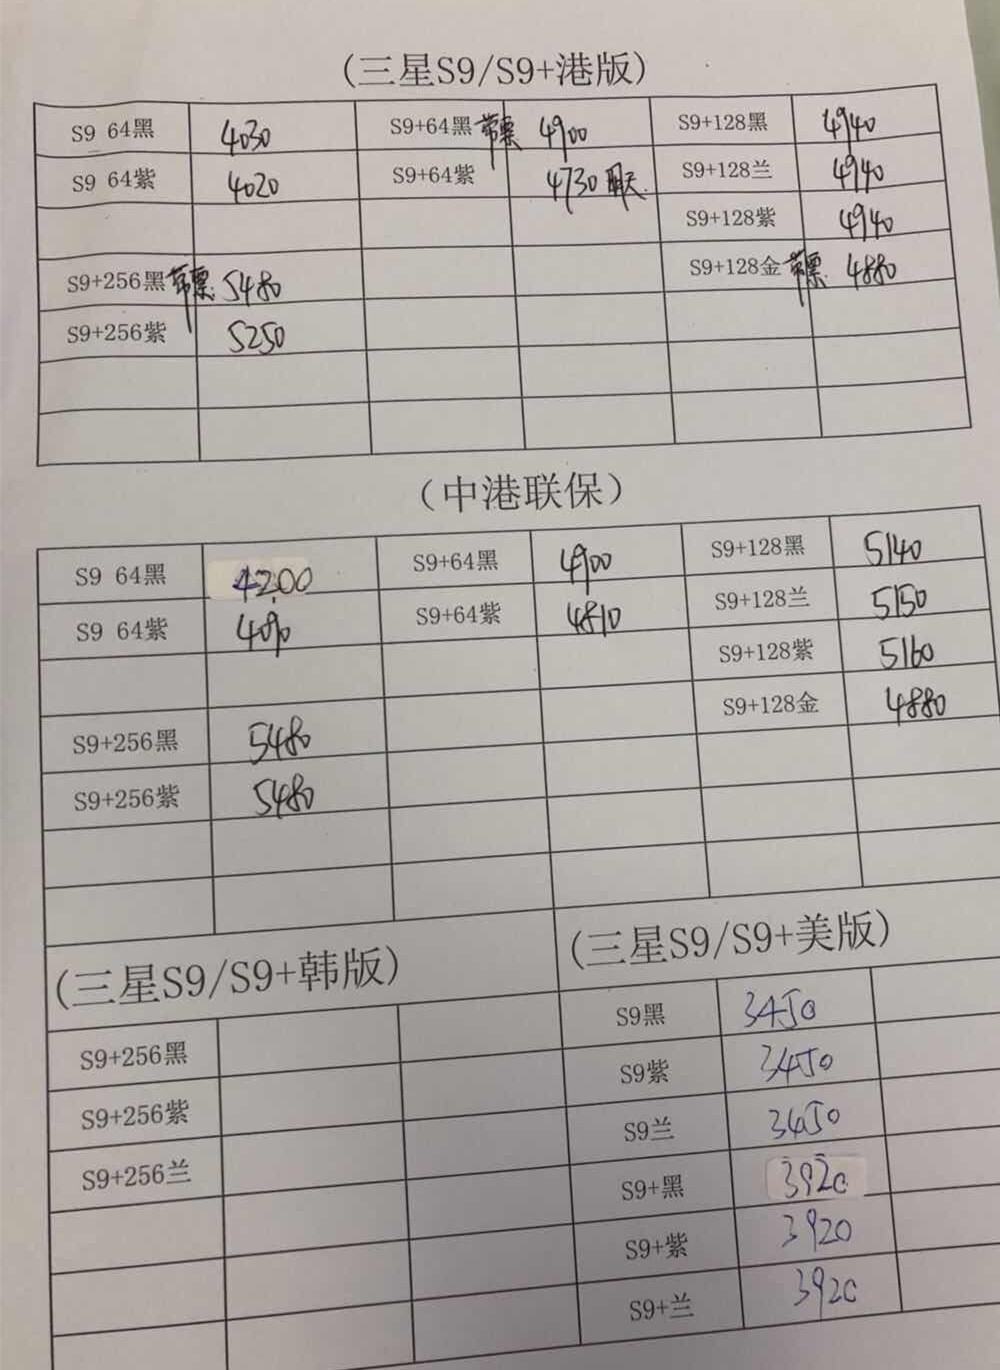 (三星S9/S9+港版)
S9 64黑 4030 S9+64黑 带票 4900 S9+128黑 4940
S9 64紫 4020 S9+64紫 4730 明天 S9+128兰 4940
S9+128紫 4940
S9+256黑 带票 5480 S9+128金 带票 4880
S9+256紫 5250
(中港联保)
S9 64黑 4200 S9+64黑 4900 S9+128黑 5140
S9 64紫 S9+64紫 4810 S9+128兰 5150
S9+128紫 5160
S9+256黑 5480 S9+128金 4880
S9+256紫 5480
(三星S9/S9+韩版) (三星S9/S9+美版)
S9+256黑 S9黑 3450
S9+256紫 S9紫 3450
S9+256兰 S9兰 3450
S9+黑 3920
S9+紫 3920
S9+兰 3920